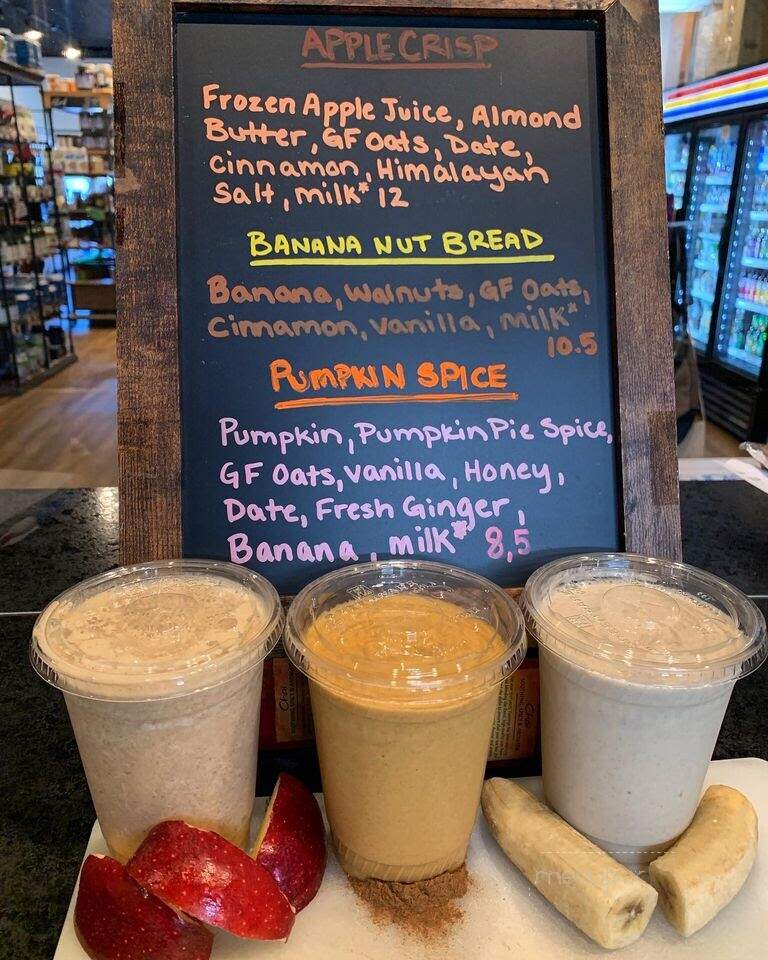 APPLE CRISP
Frozen Apple Juice, Almond
Butter, GF Oats, Date,
Cinnamon, Himalayan
Salt, milk* 12
BANANA NUT BREAD
Banana, Walnuts, GF Oats,
Cinnamon, Vanilla, milk*
10.5
PUMPKIN SPICE
Pumpkin, Pumpkin Pie Spice,
GF Oats, Vanilla, Honey,
Date, Fresh Ginger,
Banana, milk* 8,5
Chai
Chai